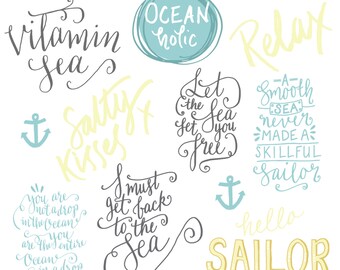 Vitamin
Sea
OCEAN
holic
Relax
Salty
Kisses
x
Let
the Sea
Set you
free
A
Smooth
SEA
never
MADE A
SKILLFUL
Sailor
You are
not a drop
in the Ocean
you
are the entire
Ocean
in a drop
I must
get back
to the
Sea
hello
SAILOR